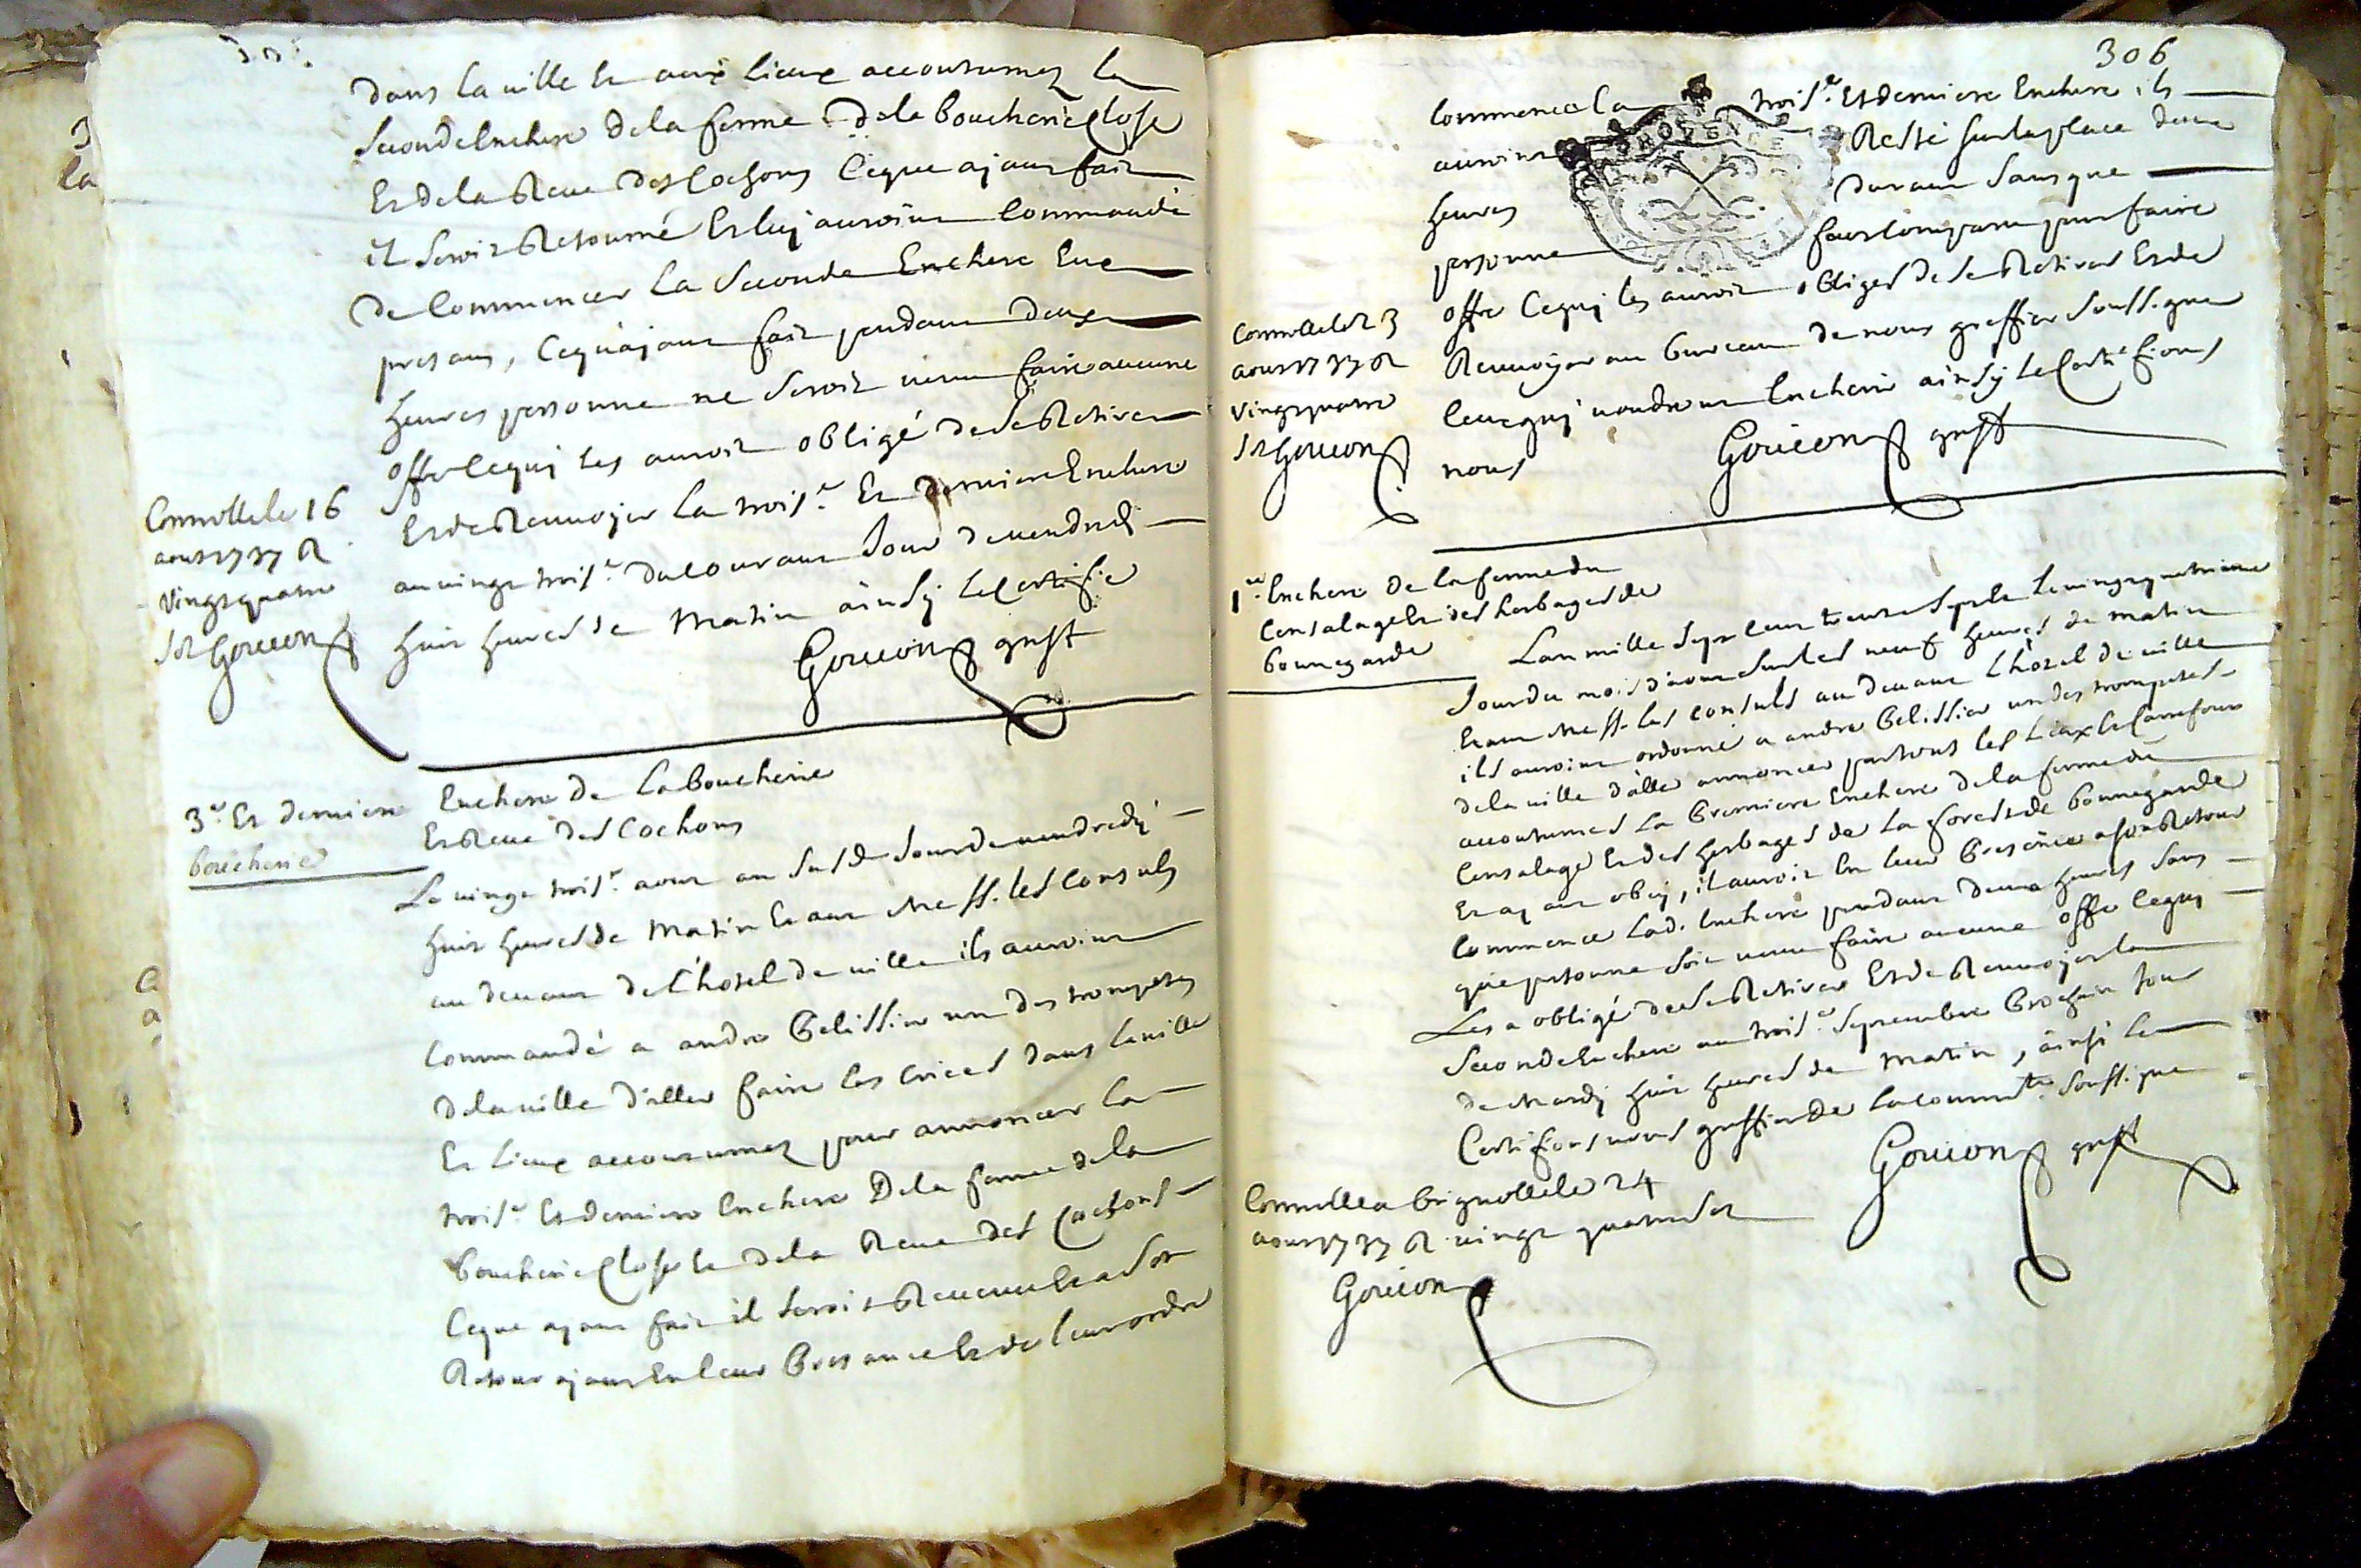 dans la ville et aux lieux accoutumez la
seconde enchere de la ferme de la boucherie close
et de la reue des cochons ce que ajant fait
il seroit retourné et luj auroint commandé
de commencer la seconde enchere eux
presans, ce qu'ajant fait pendant deux
heures personne ne seroit venu faire aucune
offre ce quj les auroit obligé de se retirer
et de renvojer la trois.e et derniere enchere
au vingt trois.e du courant jour de vendredj
huit heures de matin ainsj le certifie
Goüion greff
Controllé le 16
aoust 1737 R
vingt quatre
s. Goüion
3.e et derniere enchere de la boucherie
et reue des cochons
boucherie
Le vingt trois.e aout an susd. jour de vendredj
huit heures de matin et ant mess. les consuls
au devant de l'hotel de ville ils auroint
commandé a andre Belissier un des trompetes
de la ville d'aller faire les criees dans la ville
et lieux accoutumez pour annoncer la
trois.e et derniere enchere de la ferme de la
boucherie close et de la reue des cochons
ce que ajant fait il seroit revenu et a son
retour ajant en leur presance et de leur ordre
306
commencé la trois.e et derniere enchere ils
auroint resté sur la place deux
heures durant sans que
personne faire
offre ce quj les auroit obliges de se retirer et de
renvojer au bureau de nous greffier soussigné
ceux quj voudront encherir ainsj le certifions
nous Goüion greff
Controllé le 23
aoust 1737 R
vingt quatre
s. Goüion
1.re enchere de la ferme du
censalage et des herbages de
bonnegarde
L'an mille sept cent trente sept et le vingt quatrieme
jour du mois d'aout sur les neuf heures de matin
et ant mess. les consuls au devant l'hotel de ville
ils auroint ordonné a andre Belissier un des trompetes
de la ville d'aller annoncer par tous les lieux et carrefours
accoutumes la premiere enchere de la ferme du
censalage et des herbages de la forest de bonnegarde
et aj ant obej, il auroit en leur presence a son retour
commencé lad. enchere pendant deux heures sans
que personne soit venu faire aucune offre ce quj
les a obligé de se retirer et de renvojer la
seconde enchere au trois.e septembre prochain jour
de mardj huit heures de matin, ainsi le
certifions nous greffier de la commté. soussigné
Goüion greff
Controllé a brignolle le 24
aoust 1737 R vingt quatre sols
Goüion